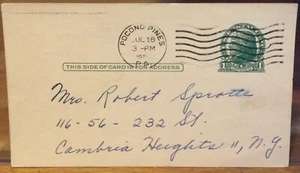 POCONO PINES
JUL 18
3-PM
PA.
THIS SIDE OF CARD IS FOR ADDRESS
1
Mrs. Robert Sprotte
116-56-232 St.
Cambria Heights 11, N.Y.